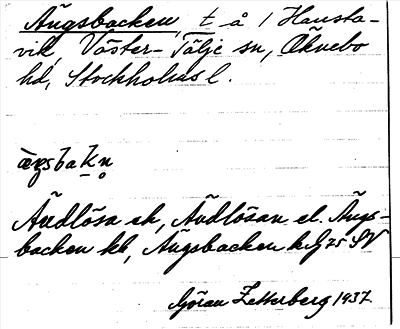 Ängsbacken, t å 1 Hansta-
vik, Väster-Tälje sn, Öknebo
hd, Stockholms l.
Ändlösa ek, Ändlösan el. Ängs-
backen kb, Ängsbacken kJ 25 SV
Göran Zetterberg 1937